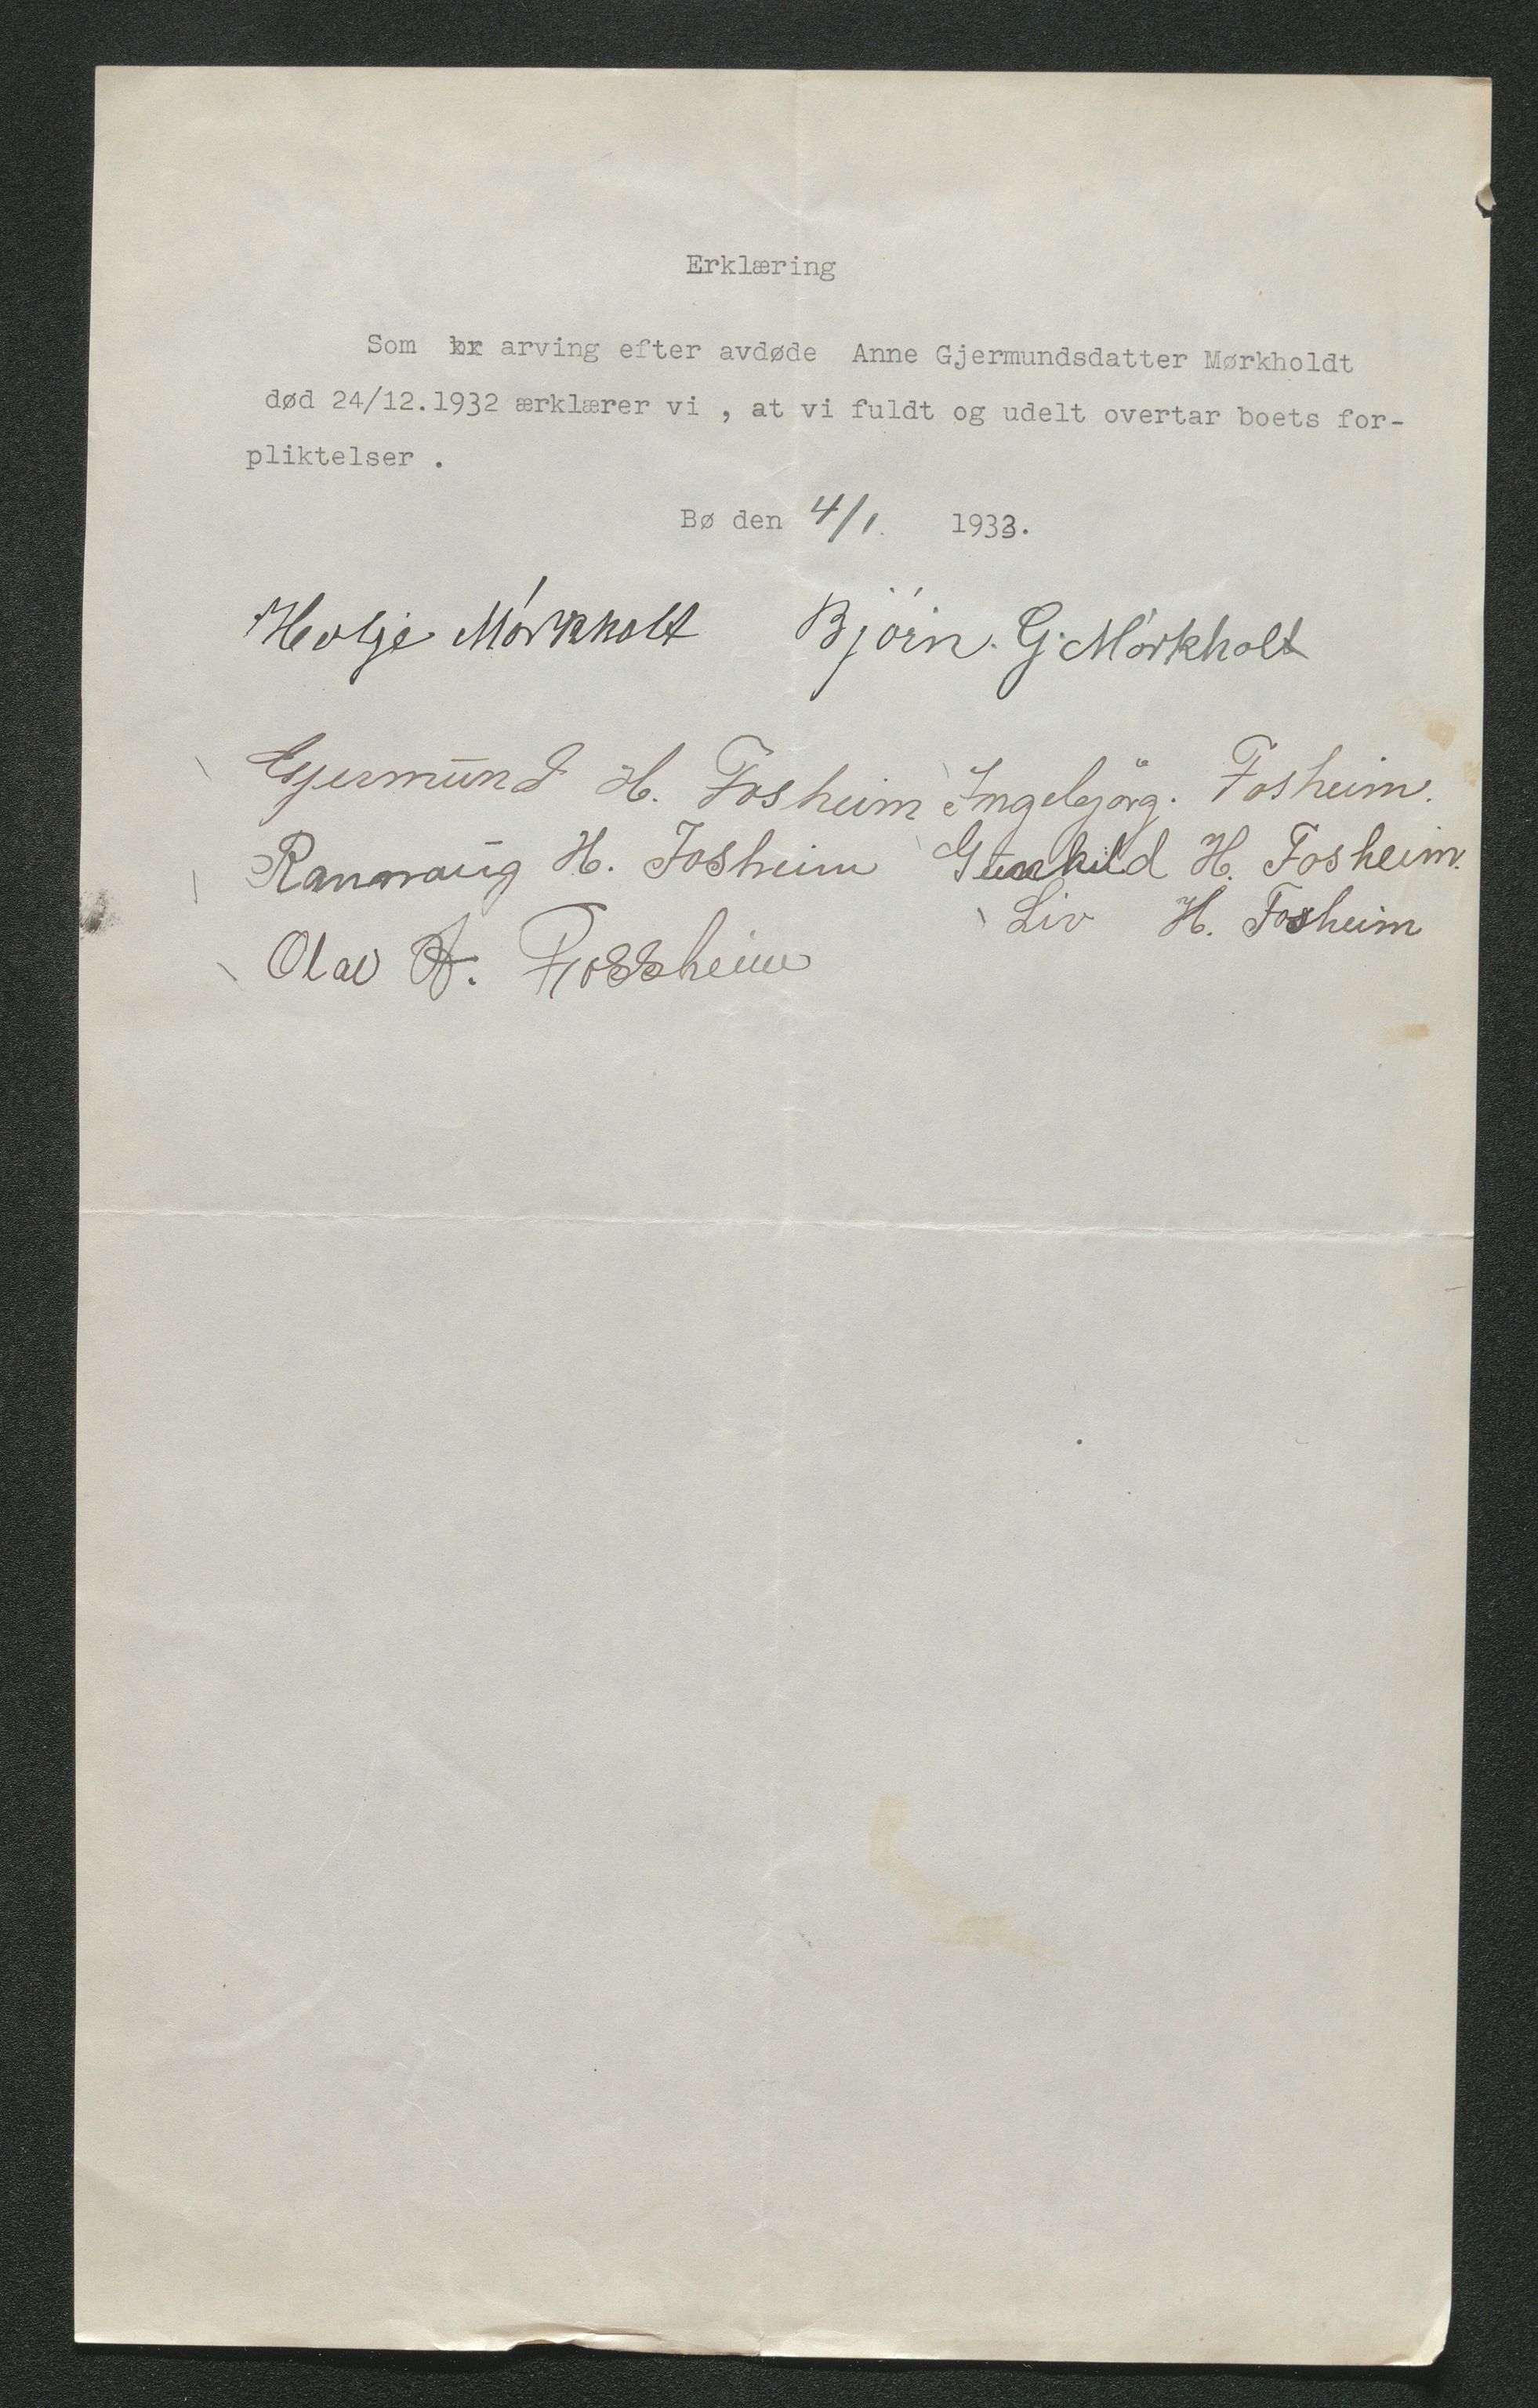 Erklæring
Som arving efter avdøde Anne Gjermundsdatter Mørkholdt
død 24/12.1932 ærklærer vi , at vi fuldt og udelt overtar boets for-
pliktelser .
Bø den 4/1. 1933.
Holje Mórkholt Bjórn. G. Mórkholt
Gjermund H. Fosheim Ingebjörg. Fosheim.
Rannaug H. Fosheim Gunhild H. Fosheim.
Liv H. Fosheim
Olav H. Fossheim